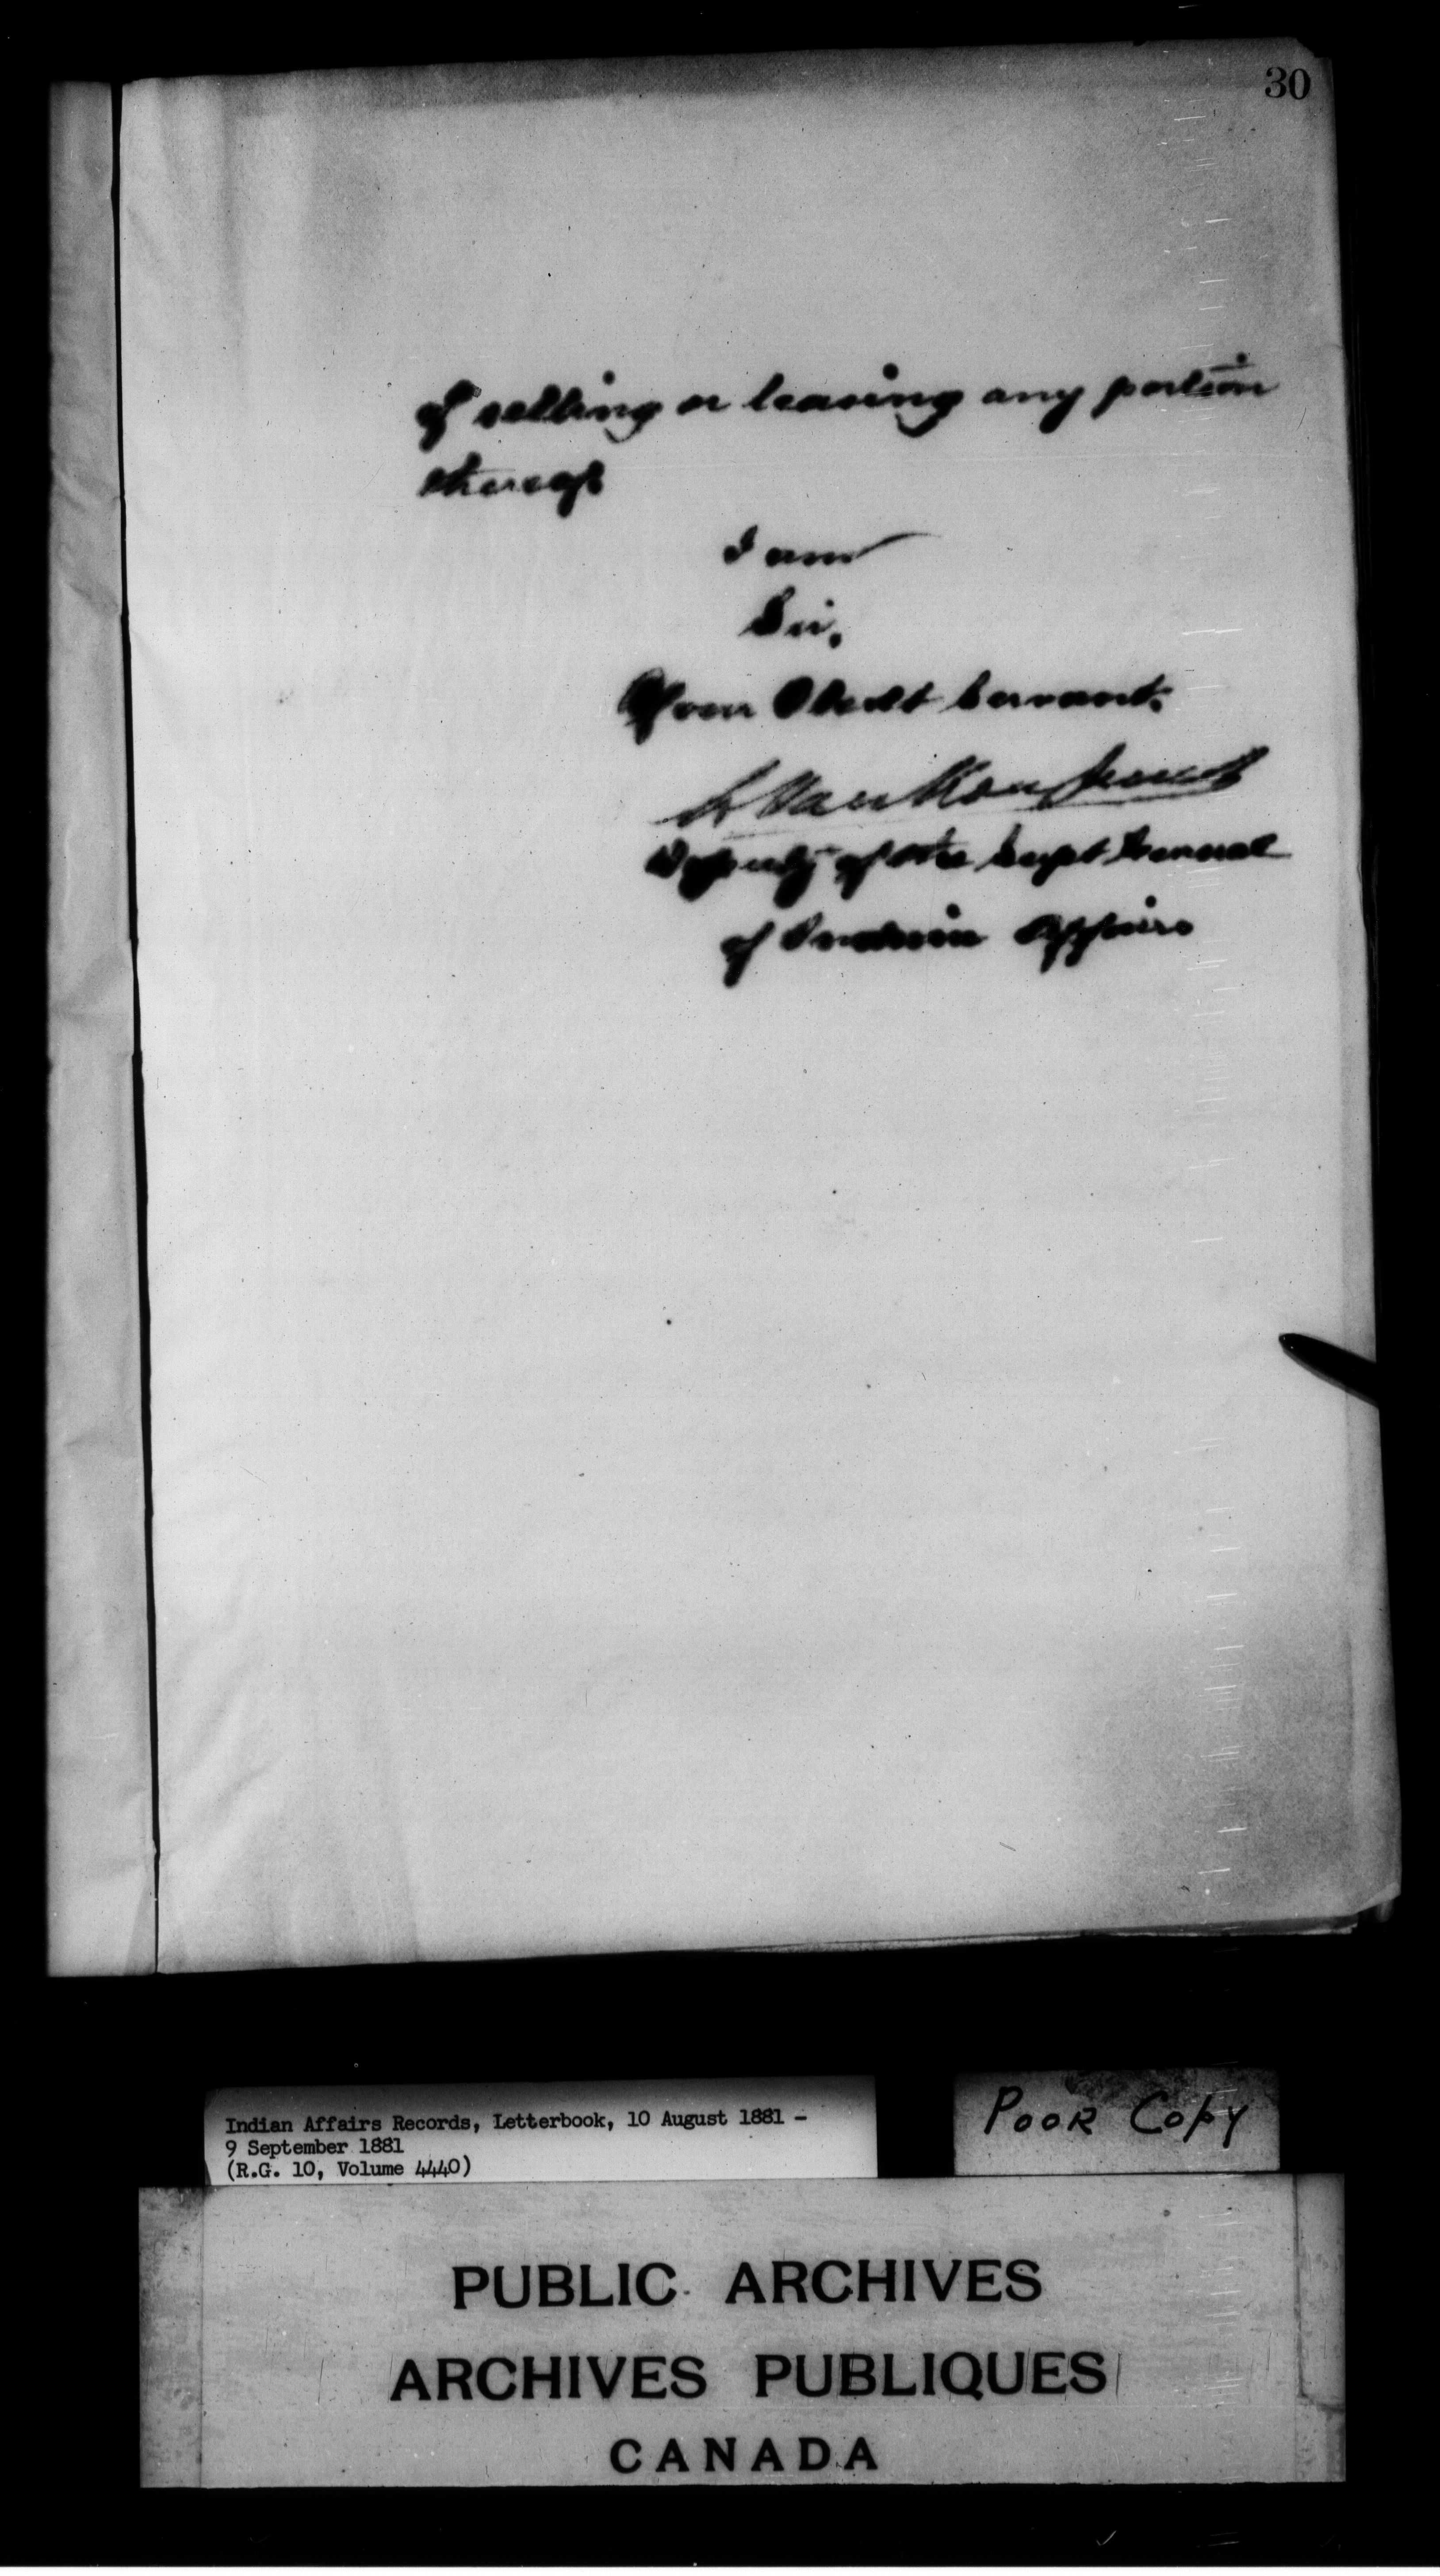 30
of selling or leasing any portion
thereof
I am
Sir,
Your Obedt Servant,
L VanKoughnet
Deputy of the Supt General
of Indian Affairs
Indian Affairs Records, Letterbook, 10 August 1881 -
9 September 1881
(R.G. 10, Volume 4440)
Poor Copy
PUBLIC ARCHIVES
ARCHIVES PUBLIQUES
CANADA